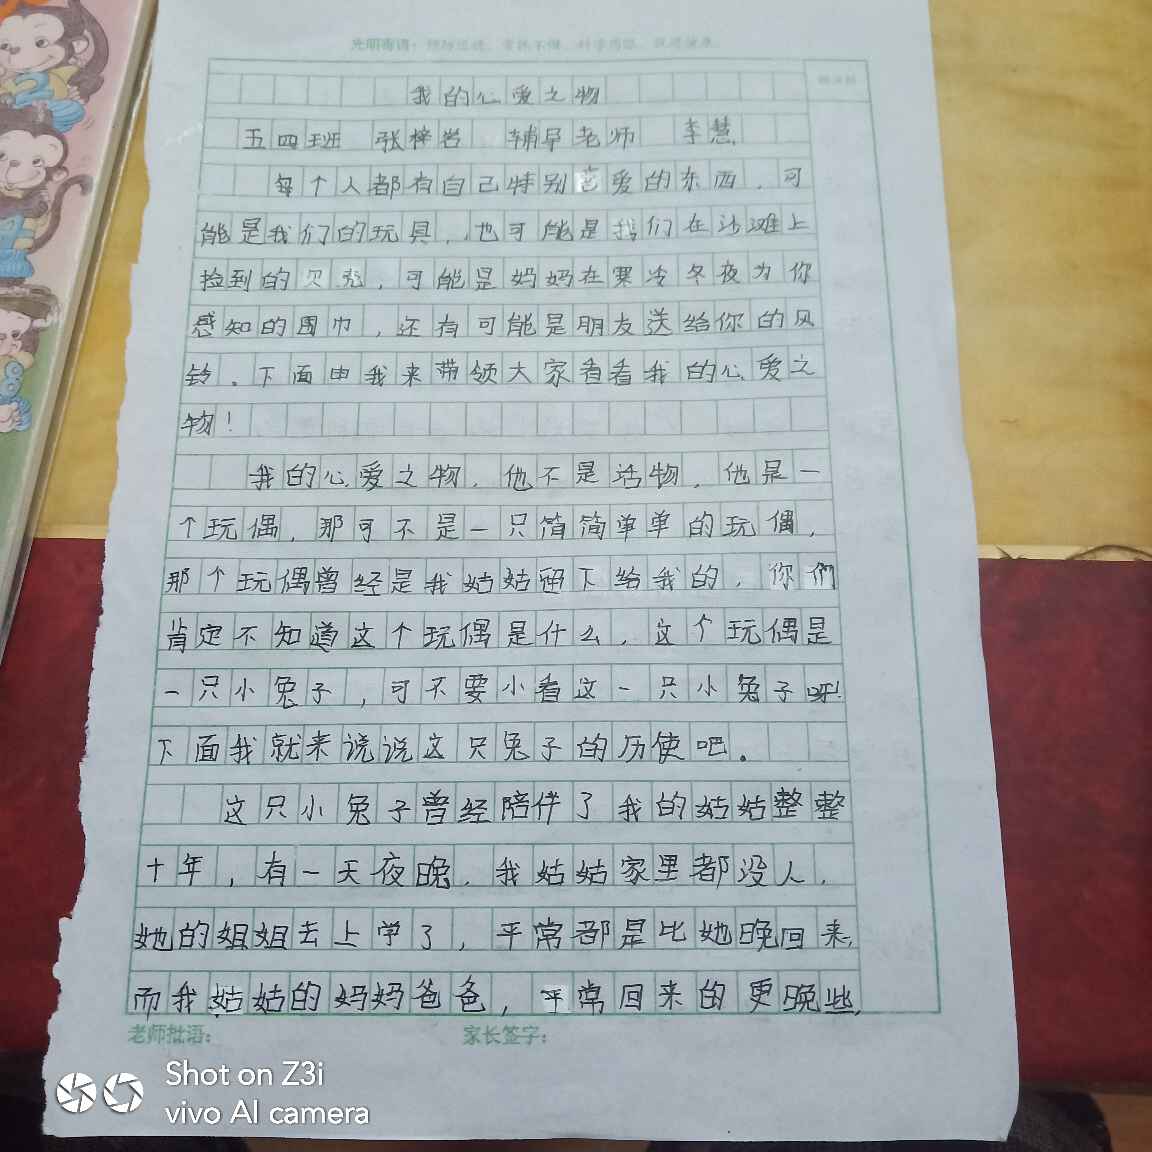 光明寄语：预防近视，
我的心爱之物
五四班 张梓岩 辅导老师 李慧
每个人都有自己特别喜爱的东西，可
能是我们的玩具，也可能是我们在沙滩上
捡到的贝壳，可能是妈妈在寒冷冬夜为你
感知的围巾，还有可能是朋友送给你的风
铃。下面由我来带领大家看看我的心爱之
物！
我的心爱之物，他不是活物，他是一
个玩偶，那可不是一只简简单单的玩偶，
那个玩偶曾经是我姑姑留下给我的，你们
肯定不知道这个玩偶是什么，这个玩偶是
一只小兔子，可不要小看这一只小兔子呀！
下面我就来说说这只兔子的历使吧。
这只小兔子曾经陪伴了我的姑姑整整
十年，有一天夜晚，我姑姑家里都没人，
她的姐姐去上学了，平常都是比她晚回来，
而我姑姑的妈妈爸爸，平常回来的更晚些，
老师批语： 家长签字：
Shot on Z3i
vivo AI camera